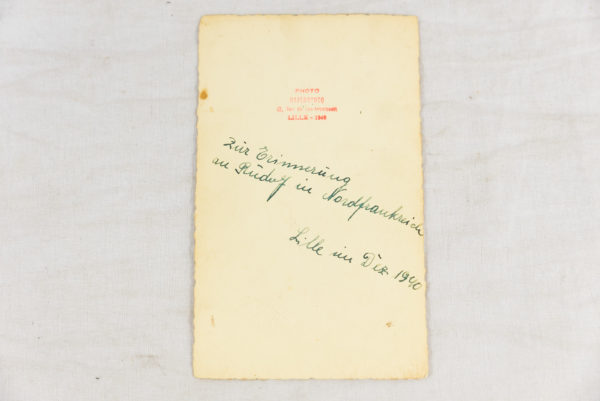 PHOTO
LILLE - 1940
Zür Erinnerüng
an Rüdolf in Nordfrankreich
Lille im Dez 1940